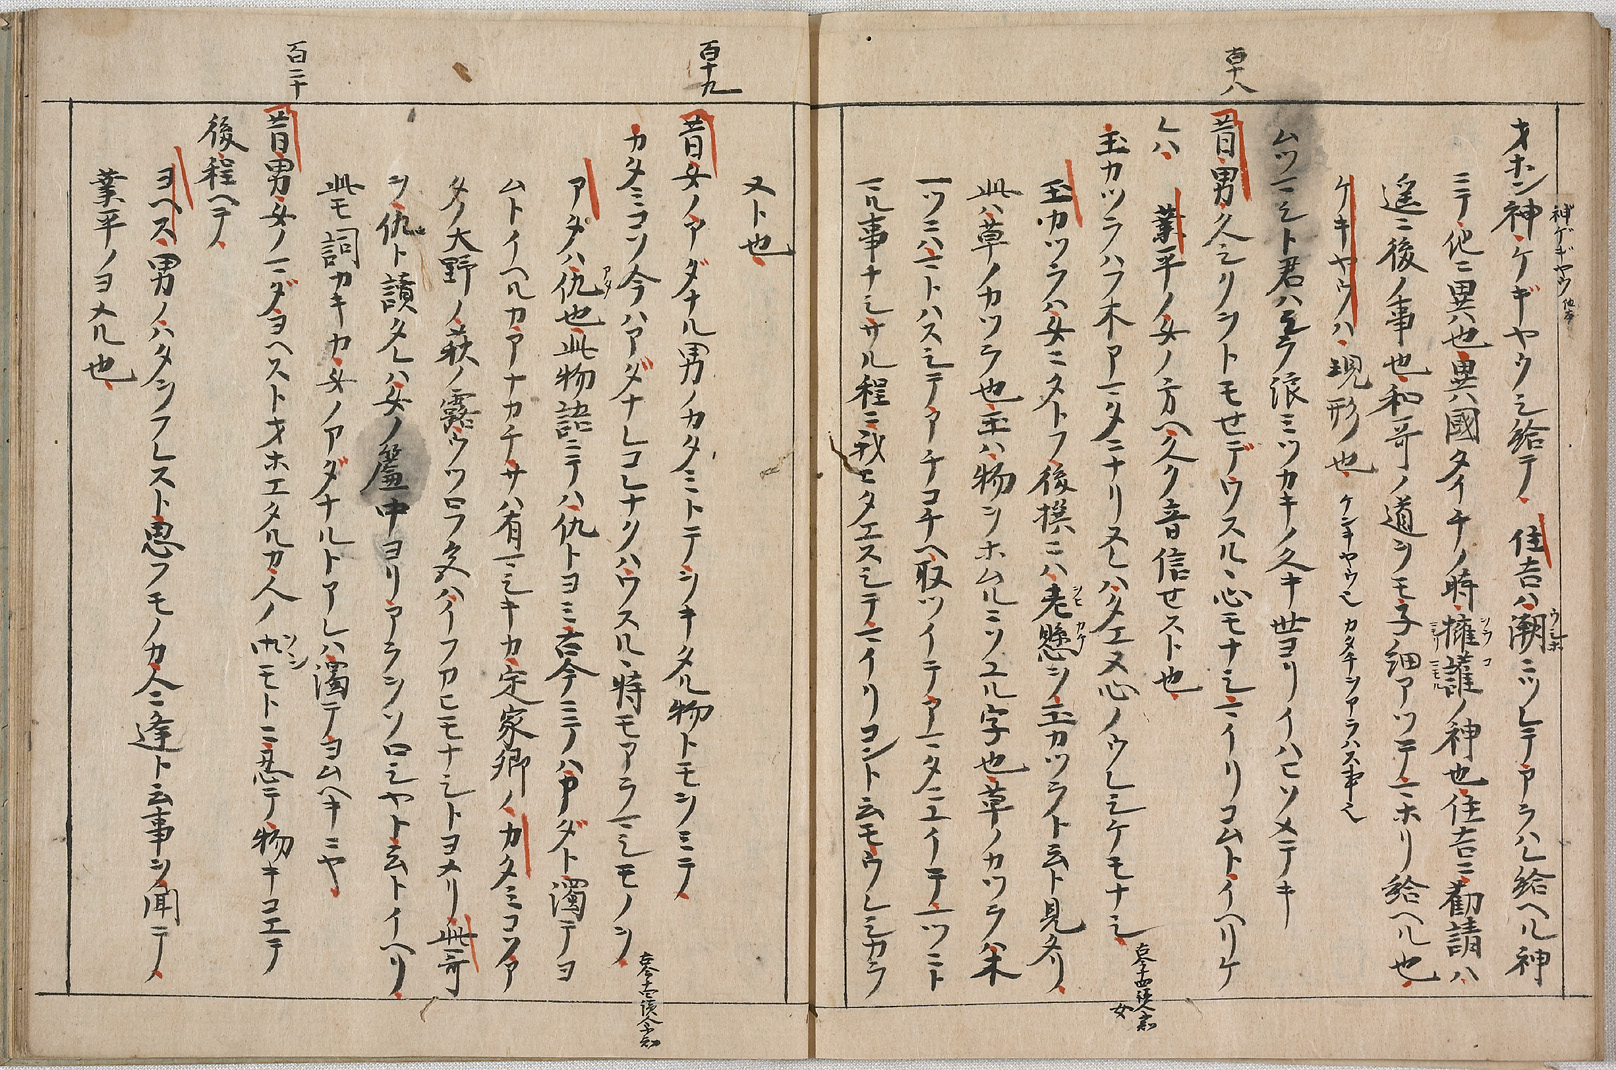 オホン神ケギヤウシ給テ住吉ハ潮ニツレテアラハレ給ヘル神
神ゲギヤウ 他本
ウシホ
ニテ他ニ異ハ也異國タイヂノ時擁護ノ神也住吉ニ勧請ハ
ヲウゴ
遥ニ後ノ事也和哥ノ道ヲモ子細アツテマホリ給ヘル也
ケキヤウハ現形也 ケンキヤウ也カタチヲアラハス事也
ムツマシト君ハシラ浪ミツカキノ久キ世ヨリイハヒソメテキ
百十八
昔男久シクヲトモせデワスルヽ心モナシマイリコムトイヘリケ
レハ 業平ノ女ノ方ヘ久ク音信せスト也
玉カツラハフ木アマタニナリヌレハタエヌ心ノウレシケモナシ
古今十四 讀人不知 女
玉カツラハ女ニタトフ後撰ニハ老懸ヲ玉カツラト云ト見タリ
ヲヒカケ
此ハ草ノカツラ也玉ハ物ヲホムルミツユル字也草ノカツラハ木
一ツニハマトハスシテアチコチヘ取ツイテアマタニエイテマツハト
ル事ナシサル程ニ我ニタエスシテマイリコント云モウレシカラ
ヌト也
百十九
昔女ノアダナル男ノカタミトテヲキタル物トモヲミテ
カタミコソ今ハアダナレコレナクハワスルヽ時モアラマシモノヲ
古今十四 讀人不知
アダハ仇也此物語ニテハ仇トヨミ古今ニテハアダト濁テヨ
アタ
ムトイヘルカアナカチサハ有マシキカ定家卿ノカタミコソア
タノ大野ノ萩ノ露ウツロフ色ハイフカヒモナシトヨメリ此哥
ヲ仇ト讀タレハ女ノ簾中ヨリアランソロシヤト云トイヘリ
此モ詞カキカ女ノアダナルトアレハ濁テヨムヘキニヤ
百二十
昔男女ノマダヨヘストオホエタルカ人ノ御モトニ忍テ物キコエテ
後程ヘテ
ヨヘス男ノハタシフレスト思フモノカ人ニ逢ト云事ヲ聞テ
業平ノヨメル也